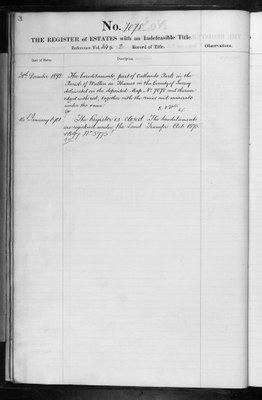 No. 7078
THE REGISTER of ESTATES with an Indefeasible Title
Reference Vol. Fol. 2 Record of Title.
Observations.
Date of Entry.
Description
December 1872 The hereditaments, part of Oatlands Park in the
Parish of Walton on Thames in the County of Surrey
delineated on the deposited Map No 7078 and thereon
edged with red, together with the mines and minerals
under the same
January 1893 The Register is closed. The hereditaments
are registered under the Land Transfer Act 1875